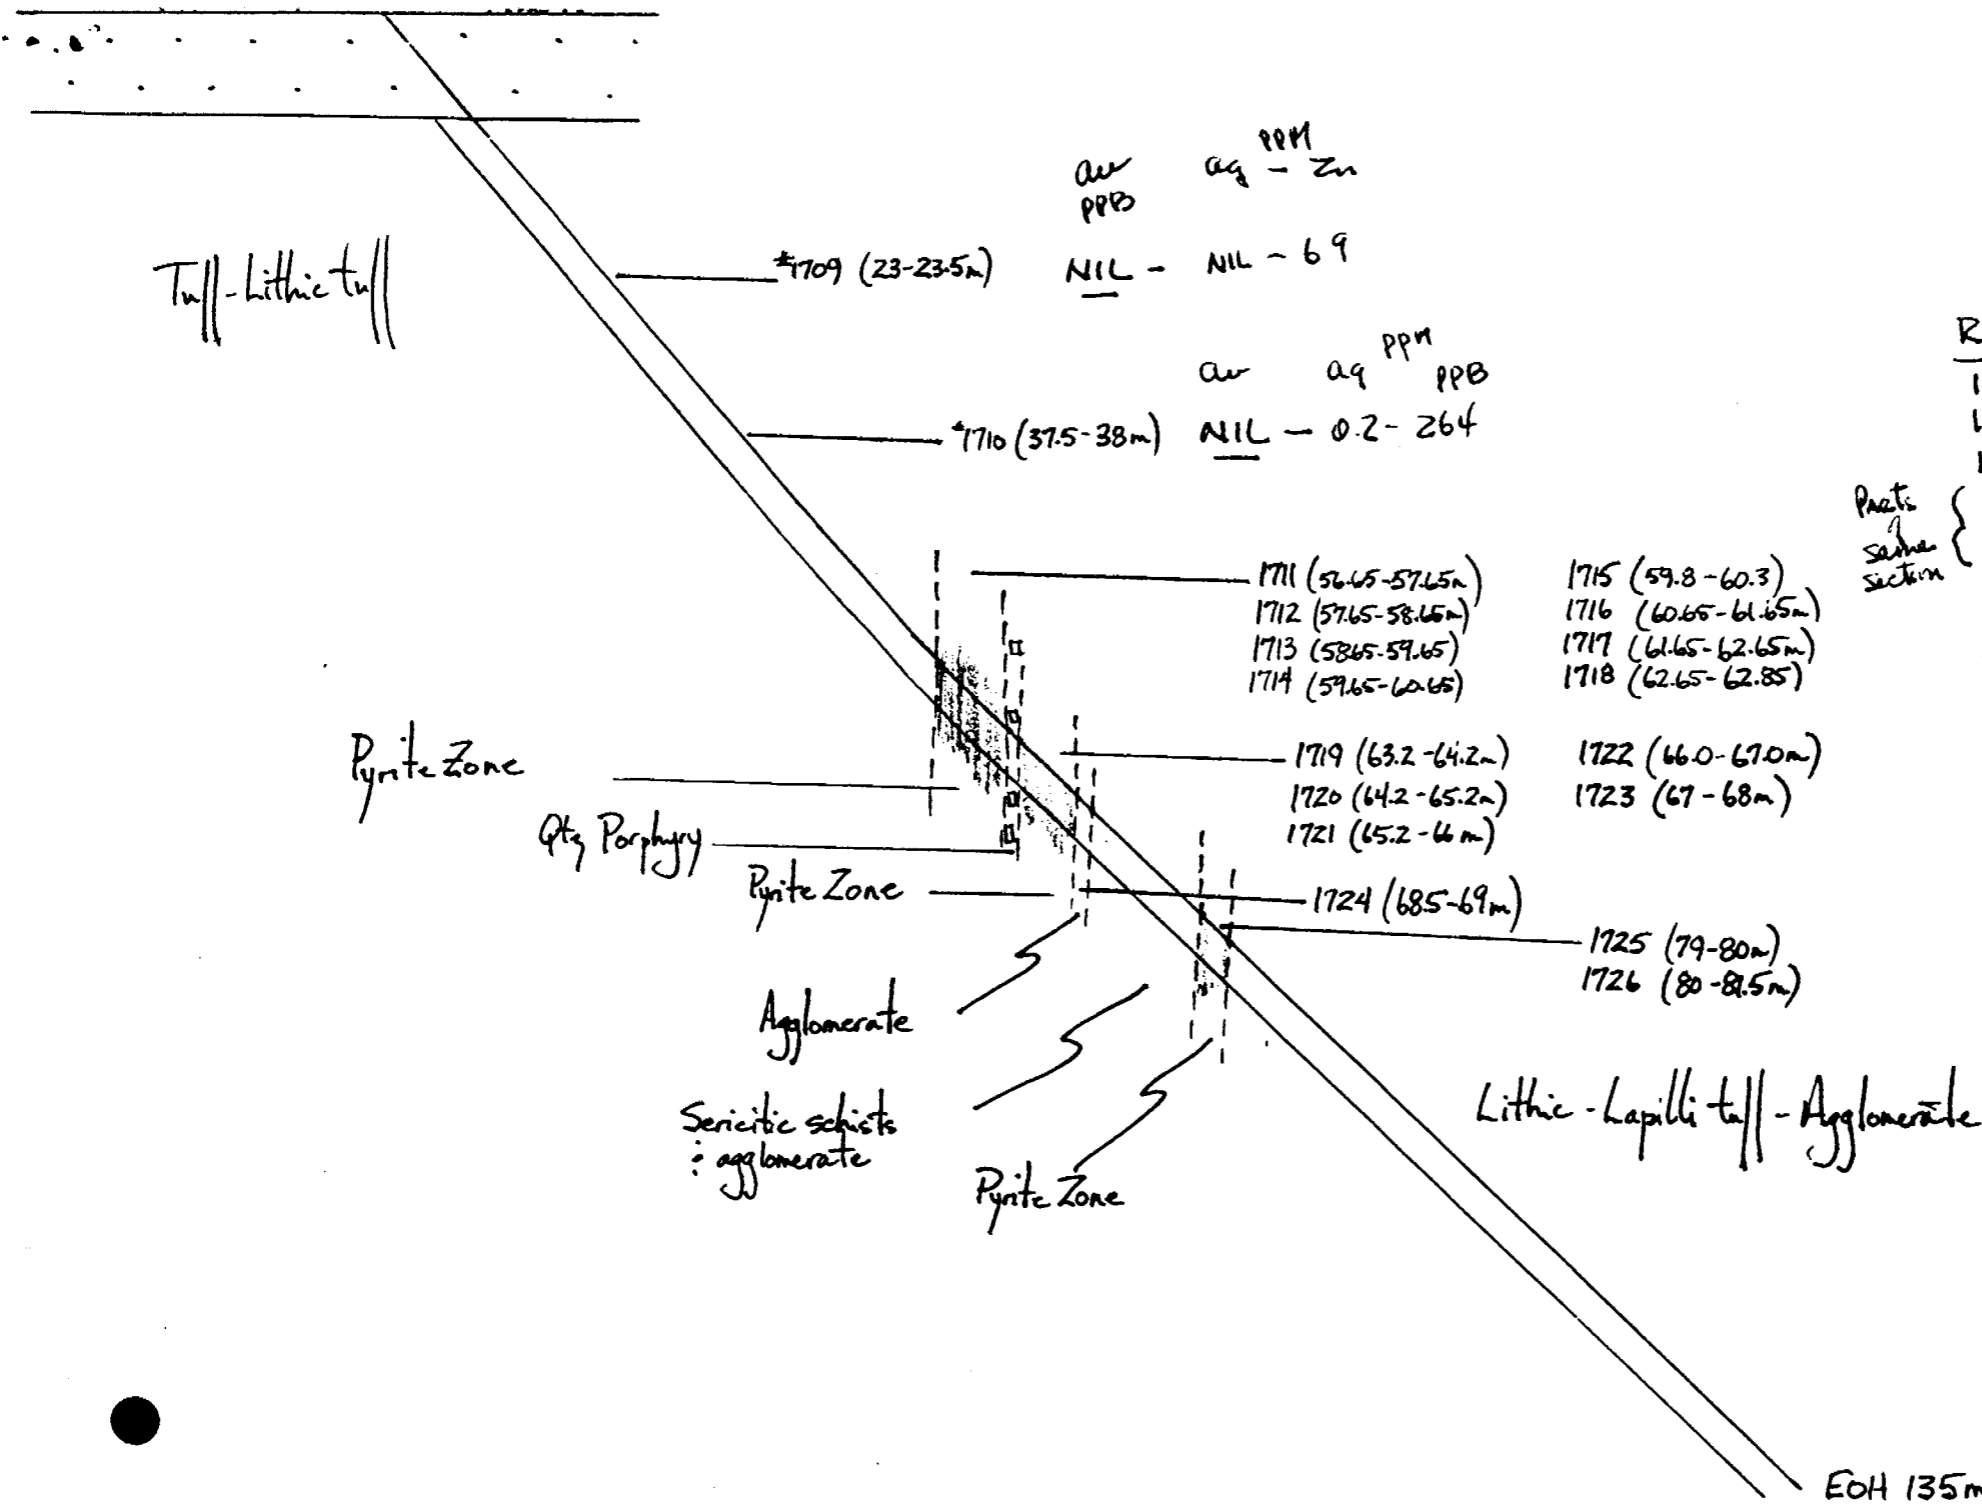 au ag PPM - Zn
PPB
Tuff-Lithic tuff
#1709 (23-23.5m) NIL - NIL - 69
au ag PPM PPB
#1710 (37.5-38m) NIL - 0.2 - 264
R
Parts
same
section
1711 (56.65-57.65m) 1715 (59.8-60.3)
1712 (57.65-58.65m) 1716 (60.65-61.65m)
1713 (58.65-59.65) 1717 (61.65-62.65m)
1714 (59.65-60.65) 1718 (62.65-62.85)
Pyrite Zone
1719 (63.2-64.2m) 1722 (66.0-67.0m)
1720 (64.2-65.2m) 1723 (67-68m)
1721 (65.2-66m)
Qtz Porphyry
Pyrite Zone
1724 (68.5-69m)
1725 (79-80m)
1726 (80-81.5m)
Agglomerate
Sericitic schists
: agglomerate
Pyrite Zone
Lithic-Lapilli tuff-Agglomerate
EOH 135m